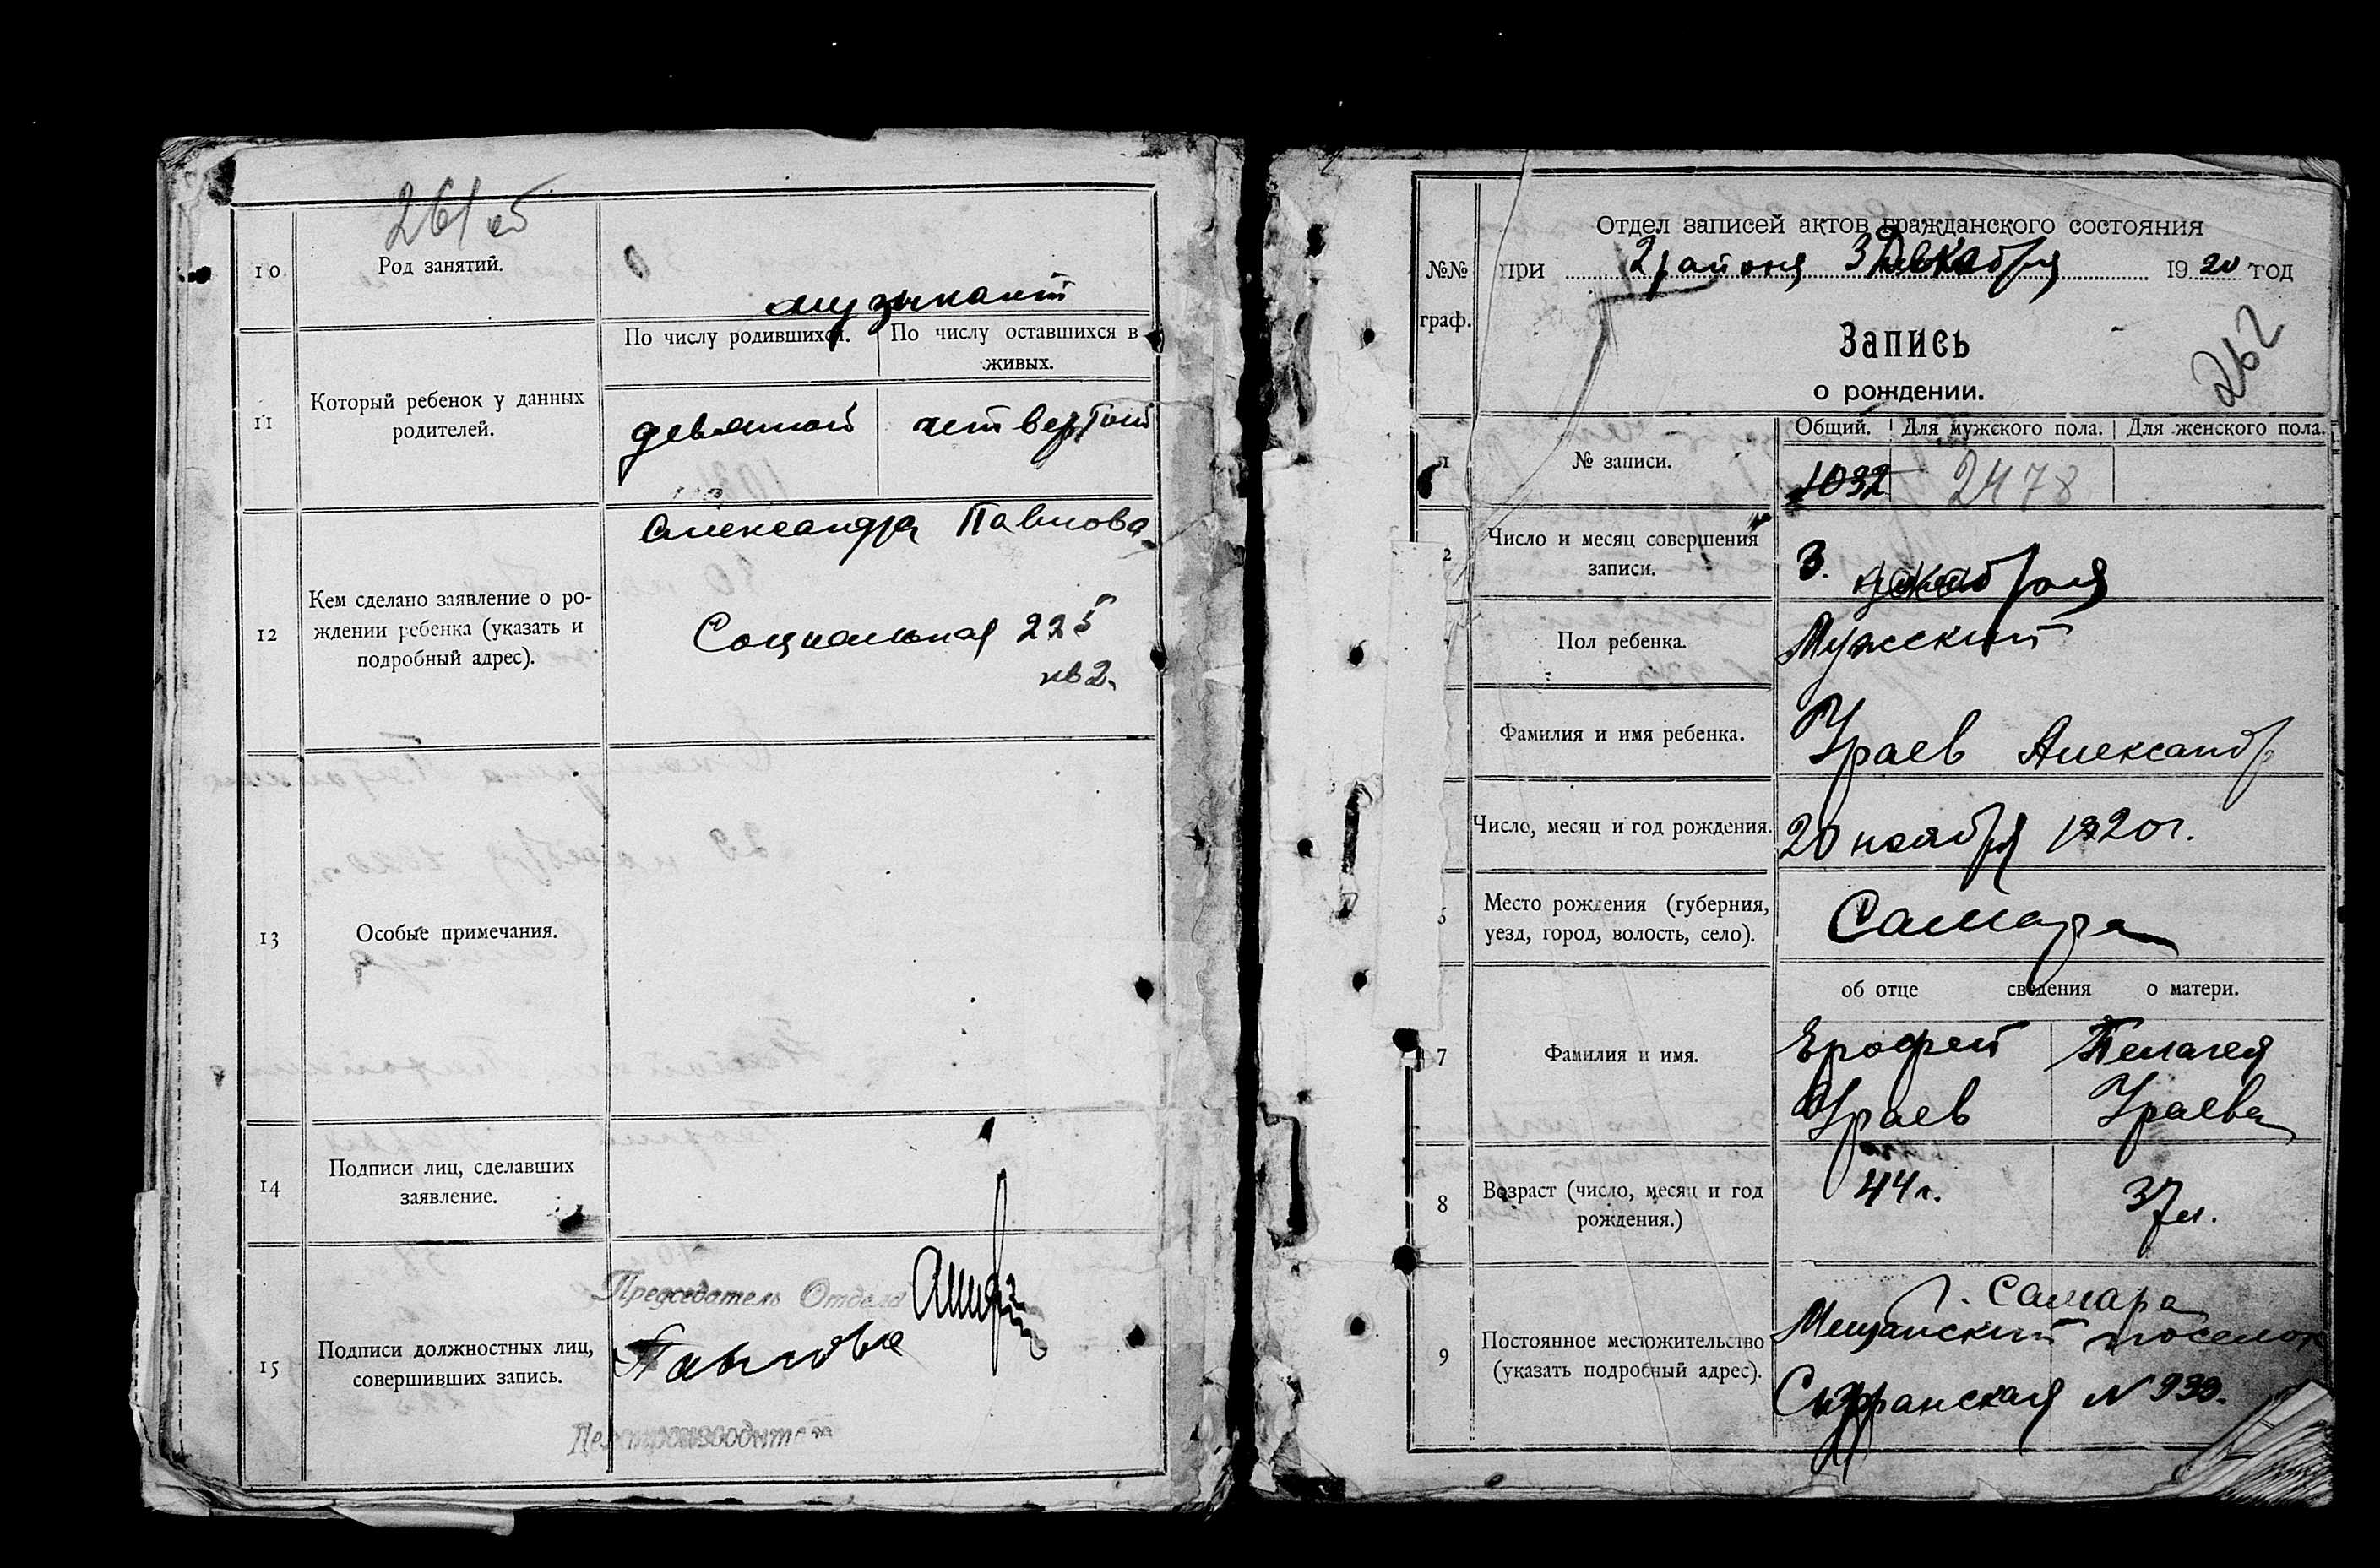 261 об
10
Род занятий.
музыкант
По числу родившихся.
По числу оставшихся в
живых.
11
Который ребенок у данных
родителей.
девятой
четвертой
12
Кем сделано заявление о ро-
ждении ребенка (указать и
подробный адрес).
Александра Павлова
Социальная 225
кв 2.
13
Особые примечания.
14
Подписи лиц, сделавших
заявление.
15
Подписи должностных лиц,
совершивших запись.
Председатель Отдела
Павлова
Делопроизводитель
№№
граф.
Отдел записей актов гражданского состояния
при 2 района 3 Декабря 1920 год
Запись
о рождении.
262
Общий. Для мужского пола. Для женского пола.
1
№ записи.
1032
2478
2
Число и месяц совершения
записи.
3. декабря
Пол ребенка.
Мужский
Фамилия и имя ребенка.
Ураев Александр
Число, месяц и год рождения.
20 ноября 1920 г.
6
Место рождения (губерния,
уезд, город, волость, село).
Самара
об отце сведения о матери.
7
Фамилия и имя.
Ерофей
Ураев
Пелагея
Ураева
8
Возраст (число, месяц и год
рождения.)
44 л.
37 л.
9
Постоянное местожительство
(указать подробный адрес).
г. Самара
Мещанский поселок
Сызранская № 930.